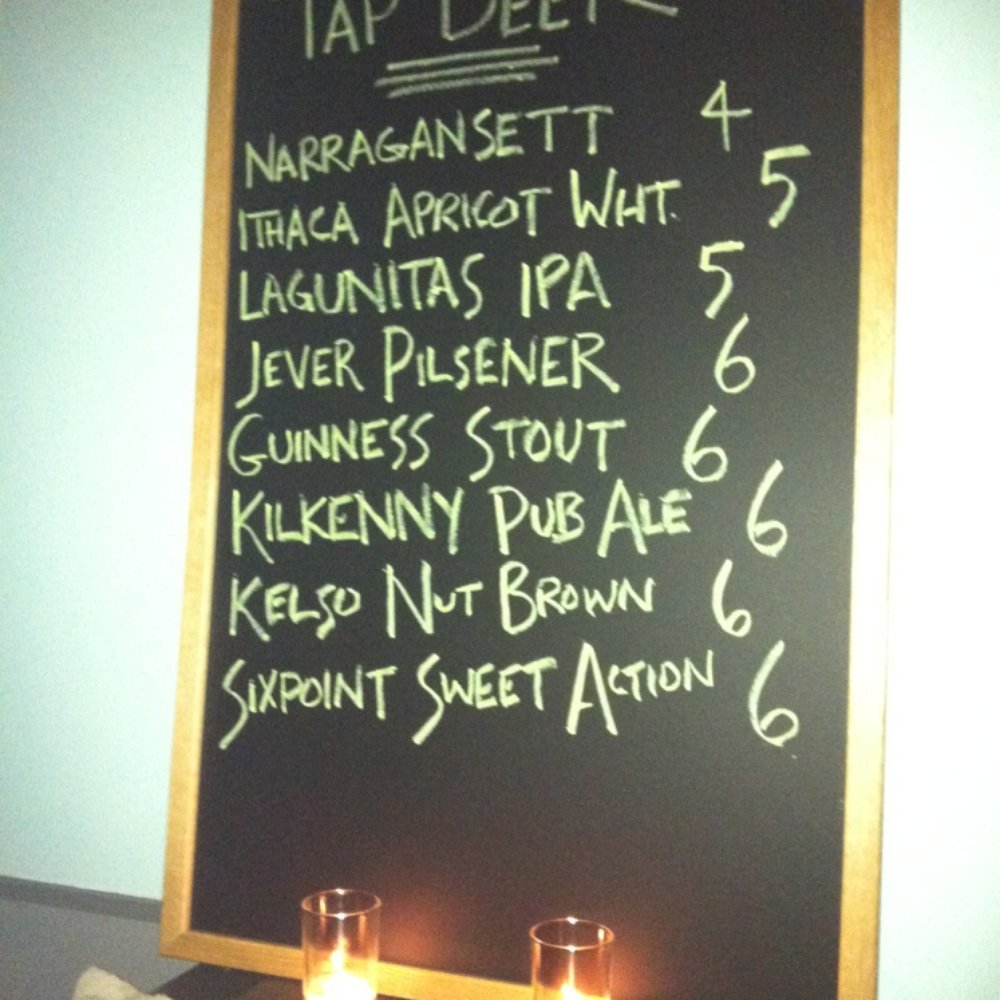 TAP BEER
NARRAGANSETT 4
ITHACA APRICOT WHT. 5
LAGUNITAS IPA 5
JEVER PILSENER 6
GUINNESS STOUT 6
KILKENNY PUB ALE 6
KELSO NUT BROWN 6
SIXPOINT SWEET ACTION 6